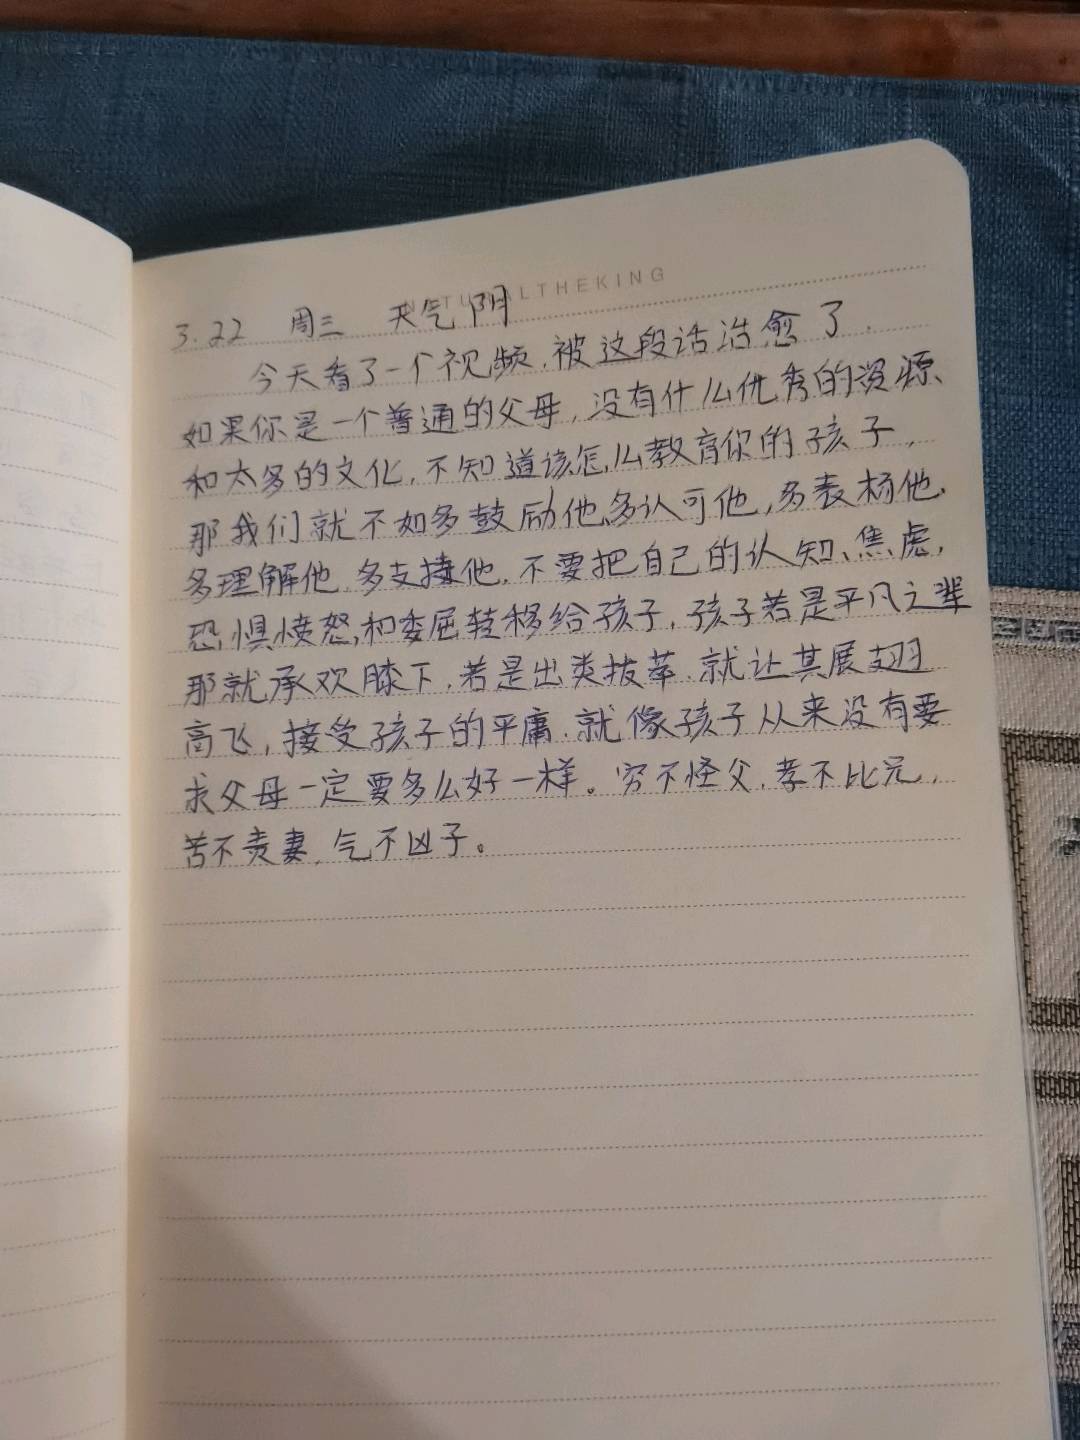 NATURALTHEKING
3.22 周三 天气阴
今天看了一个视频,被这段话治愈了.
如果你是一个普通的父母,没有什么优秀的资源、
和太多的文化,不知道该怎么教育你的孩子,
那我们就不如多鼓励他、多认可他,多表杨他、
多理解他、多支持他,不要把自己的认知、焦虑,
恐惧愤怒,和委屈转移给孩子,孩子若是平凡之辈
那就承欢膝下,若是出类拔萃、就让其展翅
高飞,接受孩子的平庸、就像孩子从来没有要
求父母一定要多么好一样。穷不怪父,孝不比兄,
苦不责妻,气不凶子。